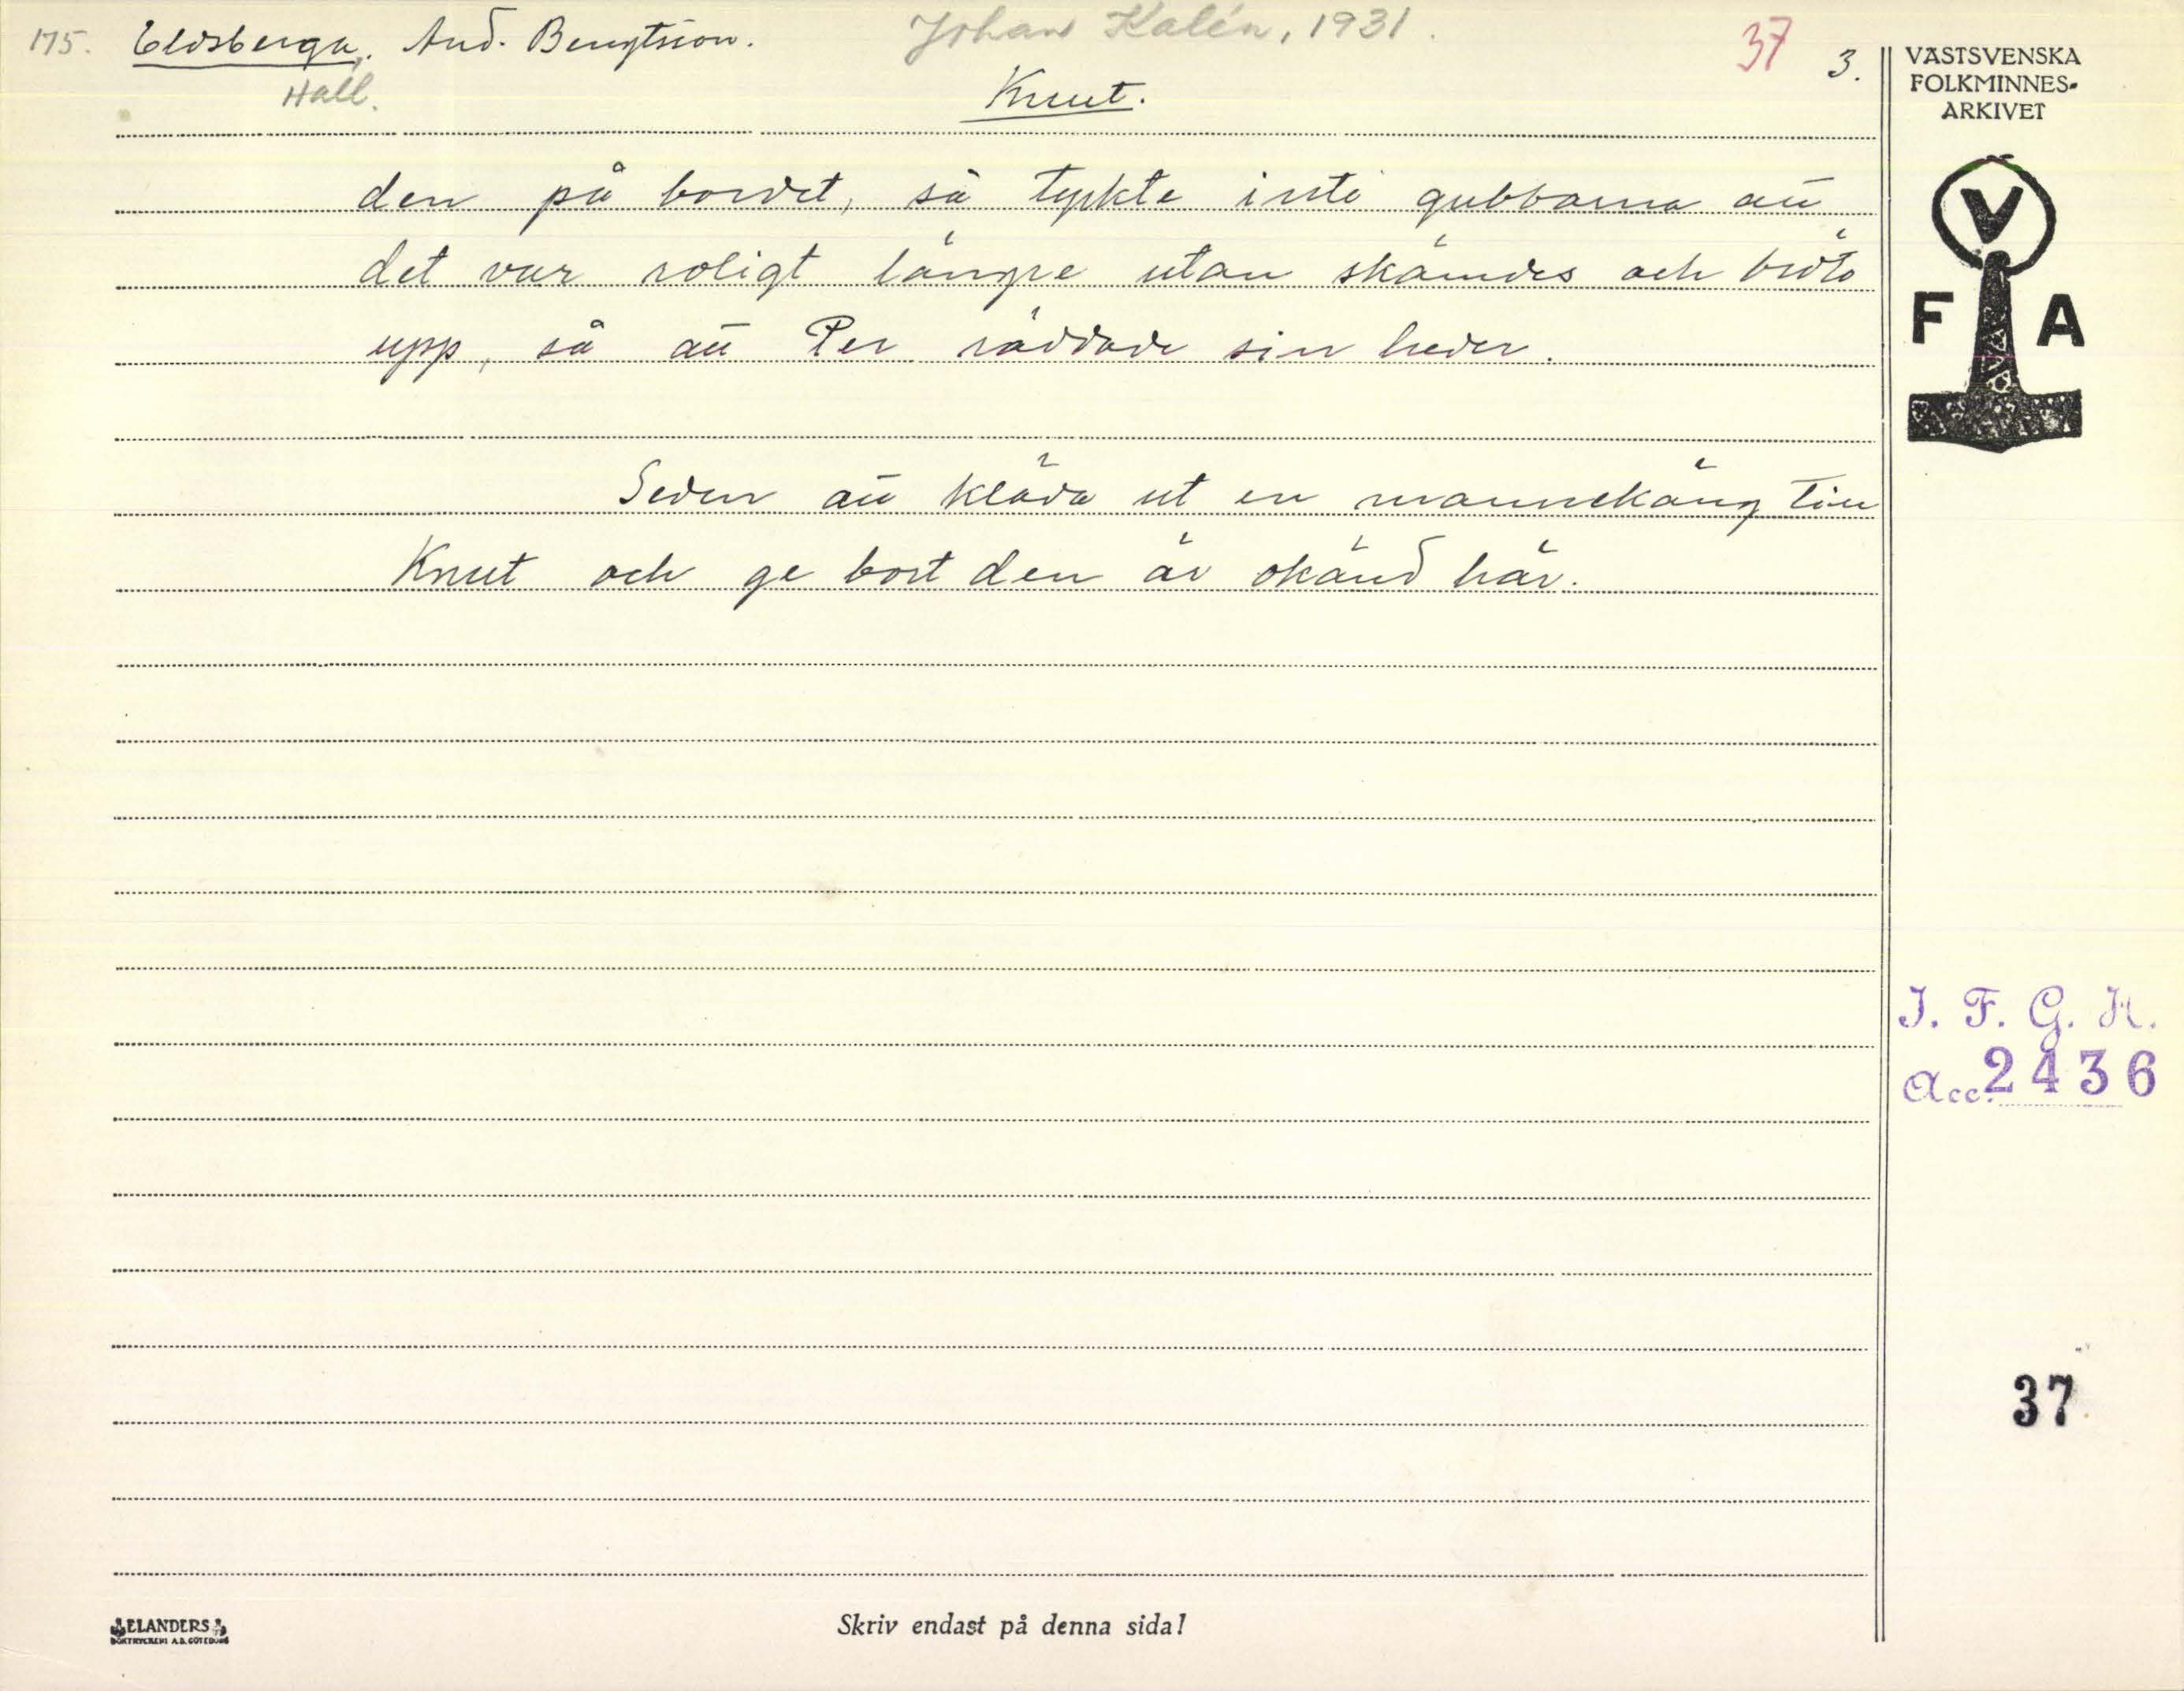 175. Eldsberga. And. Bengtsson. Johan Kalén, 1931. 37 3.
Hall. Knut.
den på bordet, så tyckte inte gubbarna att
det var roligt längre utan skämdes och bröto
upp, så att Per räddade sin heder.
Seden att kläda ut en mannekäng till
Knut och ge bort den är okänd här.
VÄSTSVENSKA
FOLKMINNES-
ARKIVET
V
F A
I. F. G. H.
Acc. 2436
37
ELANDERS
BOKTRYCKERI A.B. GÖTEBORG
Skriv endast på denna sida!